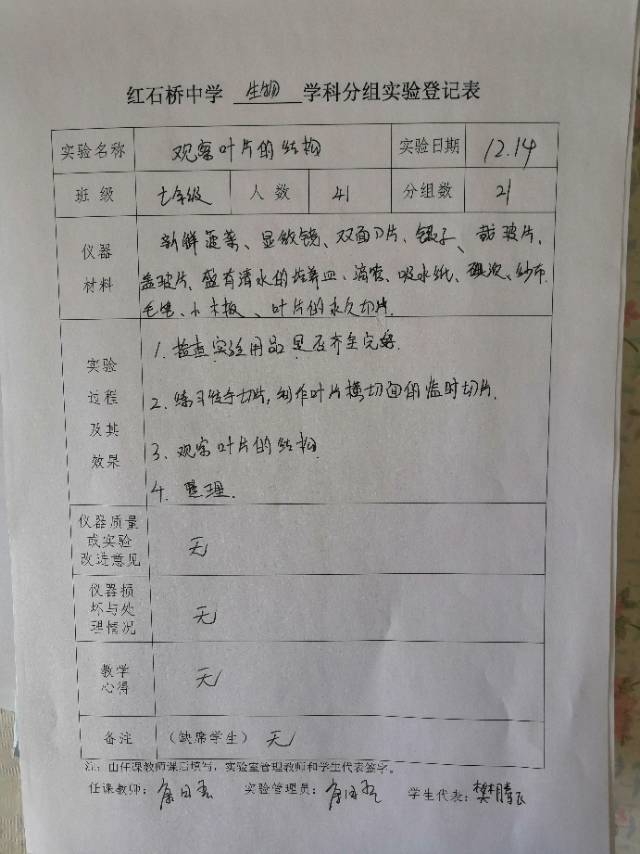 红石桥中学 生物 学科分组实验登记表
实验名称 观察叶片的结构 实验日期 12.14
班 级 七年级 人 数 41 分组数 21
仪器材料 新鲜菠菜、显微镜、双面刀片、镊子、载玻片、
盖玻片、盛有清水的培养皿、滴管、吸水纸、碘液、纱布
毛笔、小木板、叶片的永久切片.
实验过程及其效果 1. 检查实验用品是否齐全完好.
2. 练习徒手切片,制作叶片横切面的临时切片.
3. 观察叶片的结构
4. 整理.
仪器质量或实验改进意见 无
仪器损坏与处理情况 无
教学心得 无
备注 (缺席学生) 无
注:由任课教师课后填写,实验室管理教师和学生代表签字。
任课教师: 实验管理员: 学生代表:樊腾